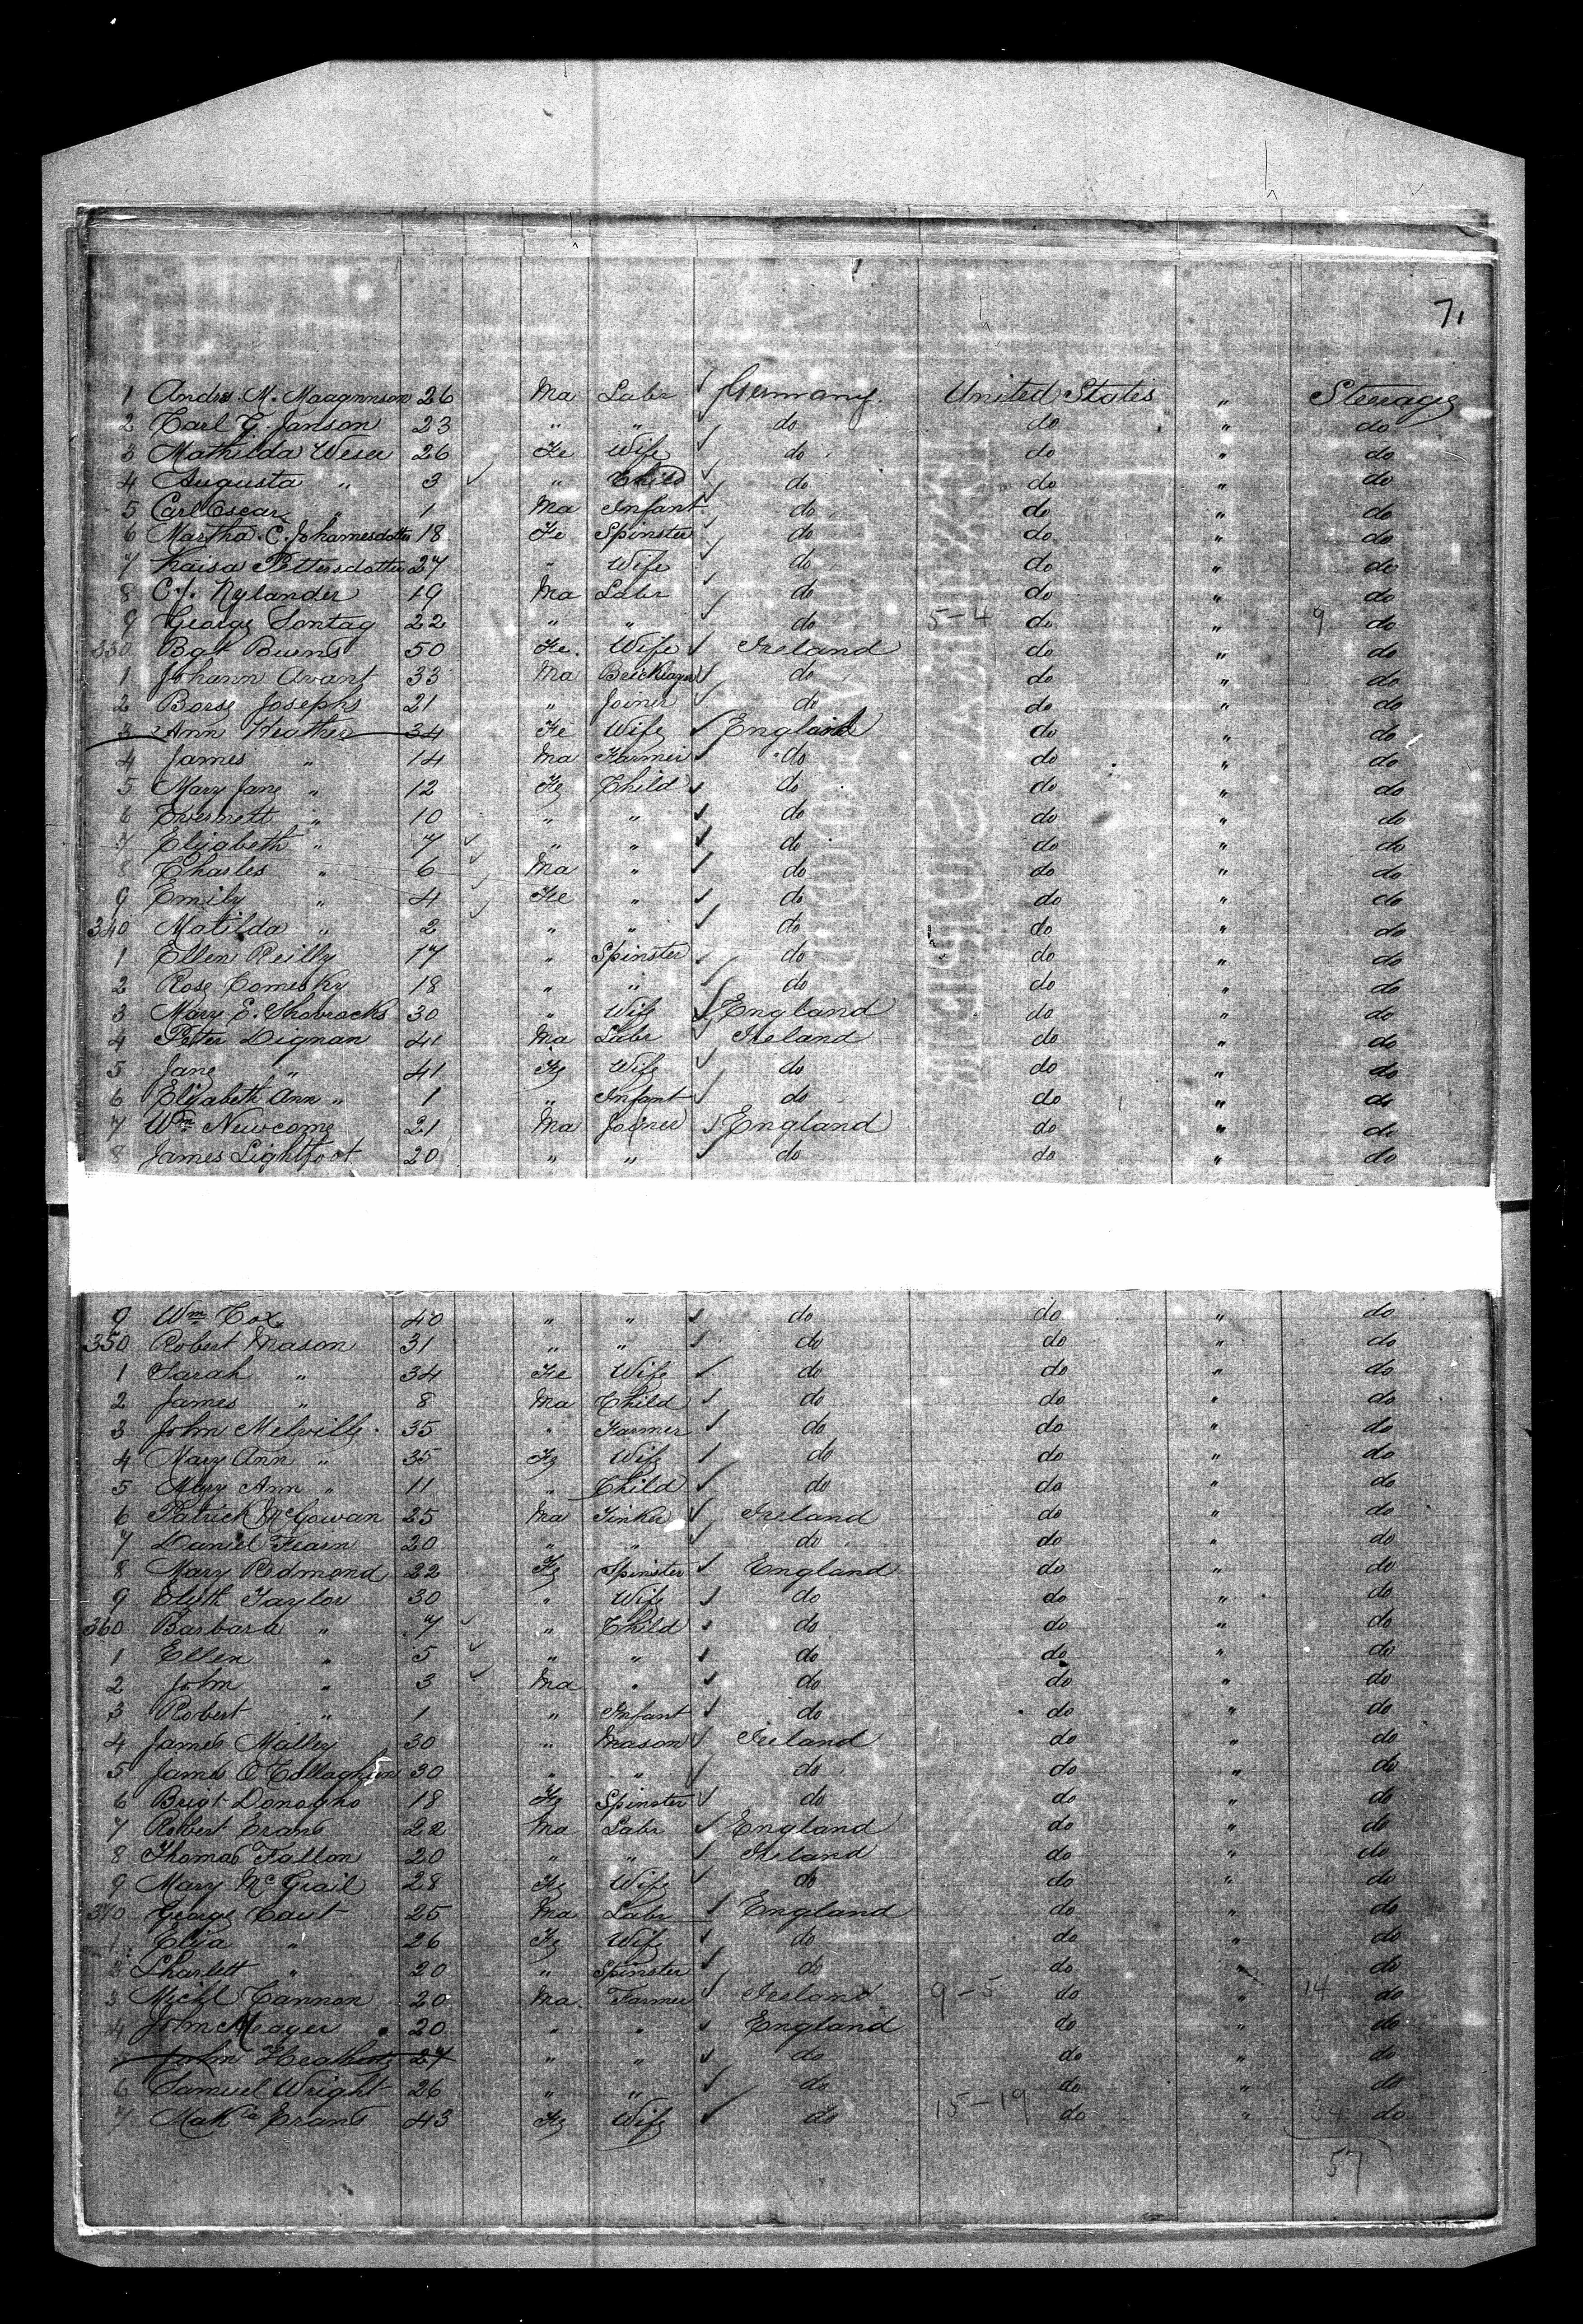 7.
1 Andrs. M. Maagnnson 26 Ma Labr Germany. United States " Steerage
2 Carl G. Janson 23 " " do do " do
3 Mathilda Weser 26 Fe Wife do do " do
4 Augusta " 3 " Child do do " do
5 Carl Oscar " 1 Ma Infant do do " do
6 Martha. C. Johamesdotter 18 Fe Spinster do do " do
7 Kaisa Pettersdotter 27 " Wife do do " do
8 C. J. Nylander 19 Ma Labr do do " do
9 George Sontag 22 " " do 5-4 do " 9 do
330 Bgt Burns 50 Fe. Wife Ireland do " do
1 Johann Avant 33 Ma Bricklayer do do " do
2 Borse Josephs 21 " Joiner do do " do
3 Ann Heather 34 Fe Wife England do " do
4 James " 14 Ma Farmer do do " do
5 Mary Jane " 12 Fe Child do do " do
6 " 10 " " do do " do
7 Elizabeth " 7 " " do do " do
8 Charles " 6 Ma " do do " do
9 Emily " 4 Fe " do do " do
340 Matilda " 2 " " do do " do
1 Ellen Reilly 17 " Spinster do do " do
2 Rose Comesky 18 " " do do " do
3 Mary E. Shorrocks 30 " Wife England do " do
4 Peter Dignan 41 Ma Labr Ireland do " do
5 Jane " 41 Fe Wife do do " do
6 Elizabeth Ann " 1 " Infant do do " do
7 Wm Newcome 21 Ma Joiner England do " do
8 James Lightfoot 20 " " do do " do
9 Wm Cox 40 " " do do " do
350 Robert Mason 31 " " do do " do
1 Sarah " 34 Fe Wife do do " do
2 James " 8 Ma Child do do " do
3 John Melville 35 " Farmer do do " do
4 Mary Ann " 35 Fe Wife do do " do
5 Mary Ann " 11 " Child do do " do
6 Patrick McGowan 25 Ma Tinker Ireland do " do
7 Daniel Fearn 20 " " do do " do
8 Mary Redmond 22 Fe Spinster England do " do
9 Elizth Taylor 30 " Wife do do " do
360 Barbara " 7 " Child do do " do
1 Ellen " 5 " " do do " do
2 John " 3 Ma " do do " do
3 Robert " 1 " Infant do do " do
4 James Malley 30 " Mason Ireland do " do
5 James O'Collaghan 30 " " do do " do
6 Brigt Donagho 18 Fe Spinster do do " do
7 Robert Evans 22 Ma Labr England do " do
8 Thomas Fallon 20 " " Ireland do " do
9 Mary McGrail 28 Fe Wife do do " do
370 George Caut 25 Ma Labr England do " do
1 Eliza " 26 Fe Wife do do " do
2 Charlett " 20 " Spinster do do " do
3 Michl Cannon 20 Ma. Farmer Ireland 9-5 do " 14 do
4 John Meager 20 " " England do " do
John 27 " " do do " do
6 Samuel Wright 26 " " do do " do
7 Evans 43 Fe Wife do 15-19 do " 34 do
57